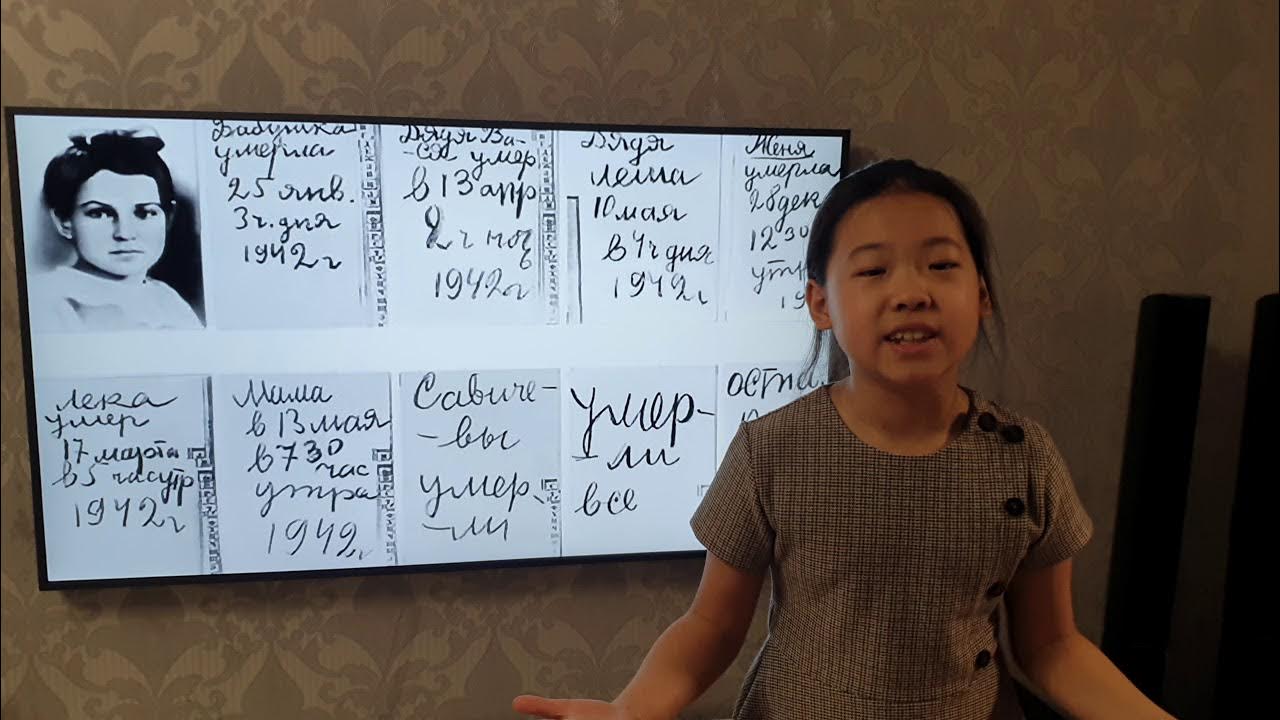 Бабушка
умерла
25 янв.
3 ч. дня
1942 г
Дядя Ва-
-ся умер
в 13 апр
2 ч ноч
1942 г
Дядя
Леша
10 мая
в 4 ч дня
1942 г
Женя
умерла
28 дек
12 30
1942 г
Лека
умер
17 марта
в 5 час утр
1942 г
Мама
в 13 мая
в 7 30
час
утра
1942 г
Савиче-
-вы
умер-
-ли
умер-
ли
все